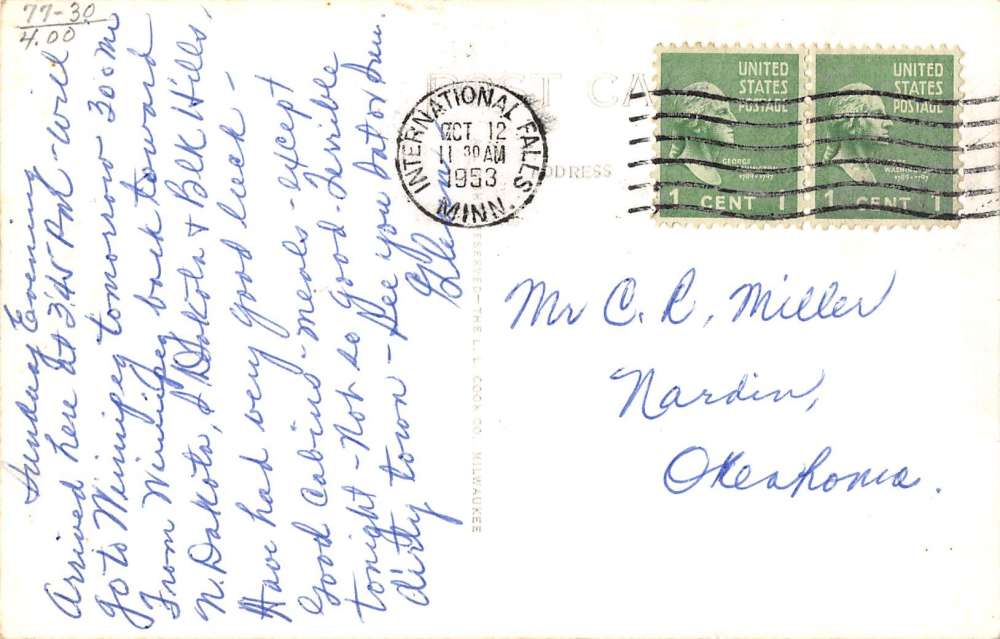 77-30
4.00
Sunday Evening
Arrived here at 3:45 PM - Will
go to Winnipeg tomorrow 300 Mi
From Winnipeg back toward
N. Dakota, S Dakota & Blk Hills,
Have had very good luck -
Good Cabins - meals - except
tonight - Not so good - Terrible
dirty town - See you Sat or Sun.
POST CARD
ADDRESS
INTERNATIONAL FALLS
OCT 12
11 30 AM
1953
MINN.
UNITED
STATES
POSTAGE
GEORGE
WASHINGTON
1789-1797
1 CENT 1
UNITED
STATES
POSTAGE
WASHINGTON
1789-1797
1 CENT 1
Mr C. R. Miller
Nardin,
Oklahoma.
RESERVED-THE L. L. COOK CO. MILWAUKEE